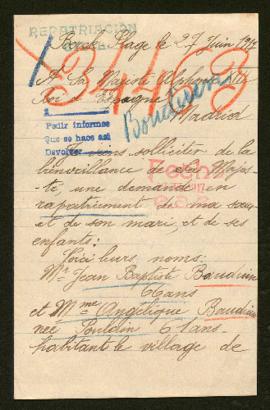 REPATRIACIÓN
Plage le 27 Juin 1917
34463
A Sa Majesté Alphonse XIII
Roi d'Espagne
Madrid
Bauduin
Pedir informes
Que se hace así
Devolver
Je viens solliciter de la
bienveillance de Sa Majes-
té une demande en
rapatriement de ma sœur
et de son mari, et de ses
enfants:
Voici leurs noms:
Mr Jean Baptiste Bauduin
66 ans
et Mme Angélique Bauduin
née 61 ans
habitant le village de